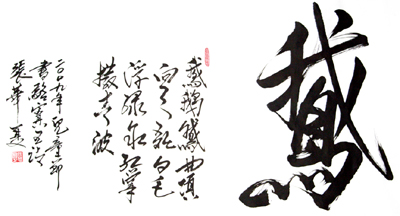 鵞
鵞鵝鵞曲項
向天歌白毛
浮綠水紅掌
撥清波
二〇〇九年兒童節
書駱賓王詩